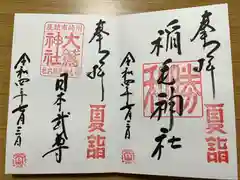 奉拝
稲毛神社
勝
夏詣
令和四年七月三日
奉拝
大鷲神社
日本武尊
夏詣
令和四年七月三日